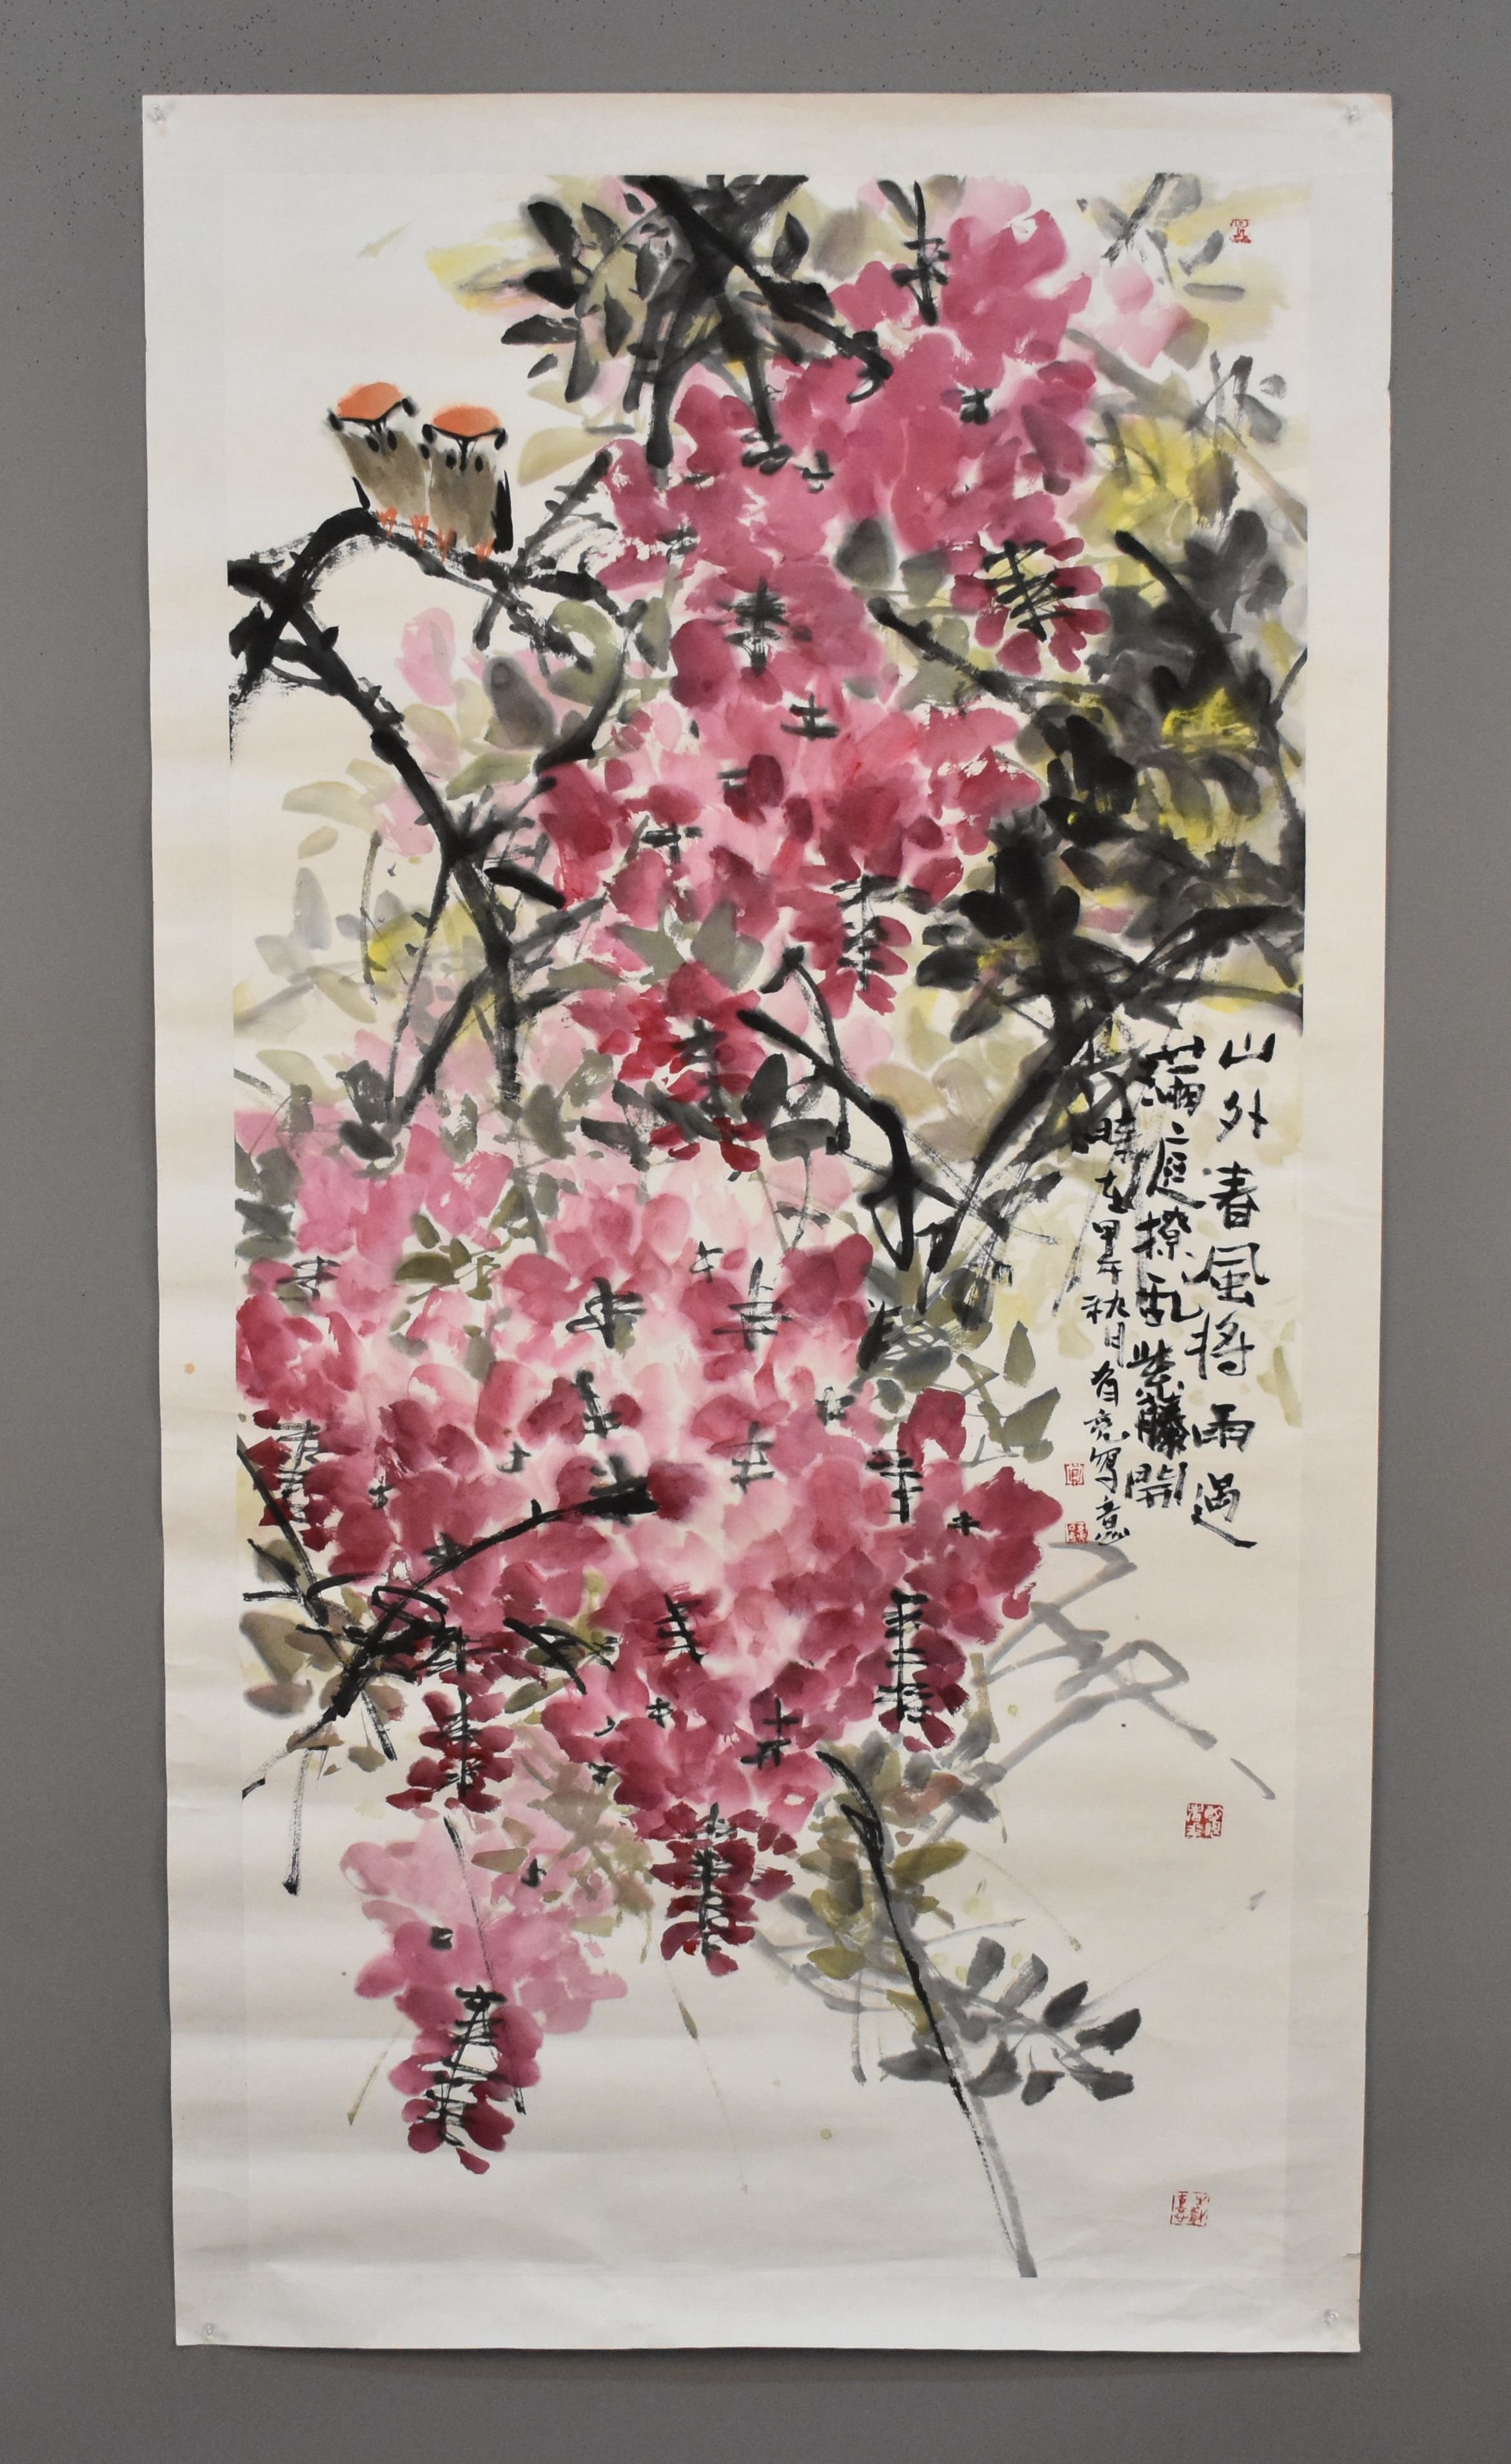 山外春風将雨過
滿庭撩乱紫藤開
時在甲午秋月有亮寫意